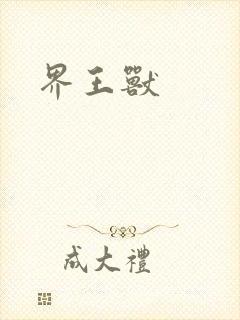 界王獸
成大禮